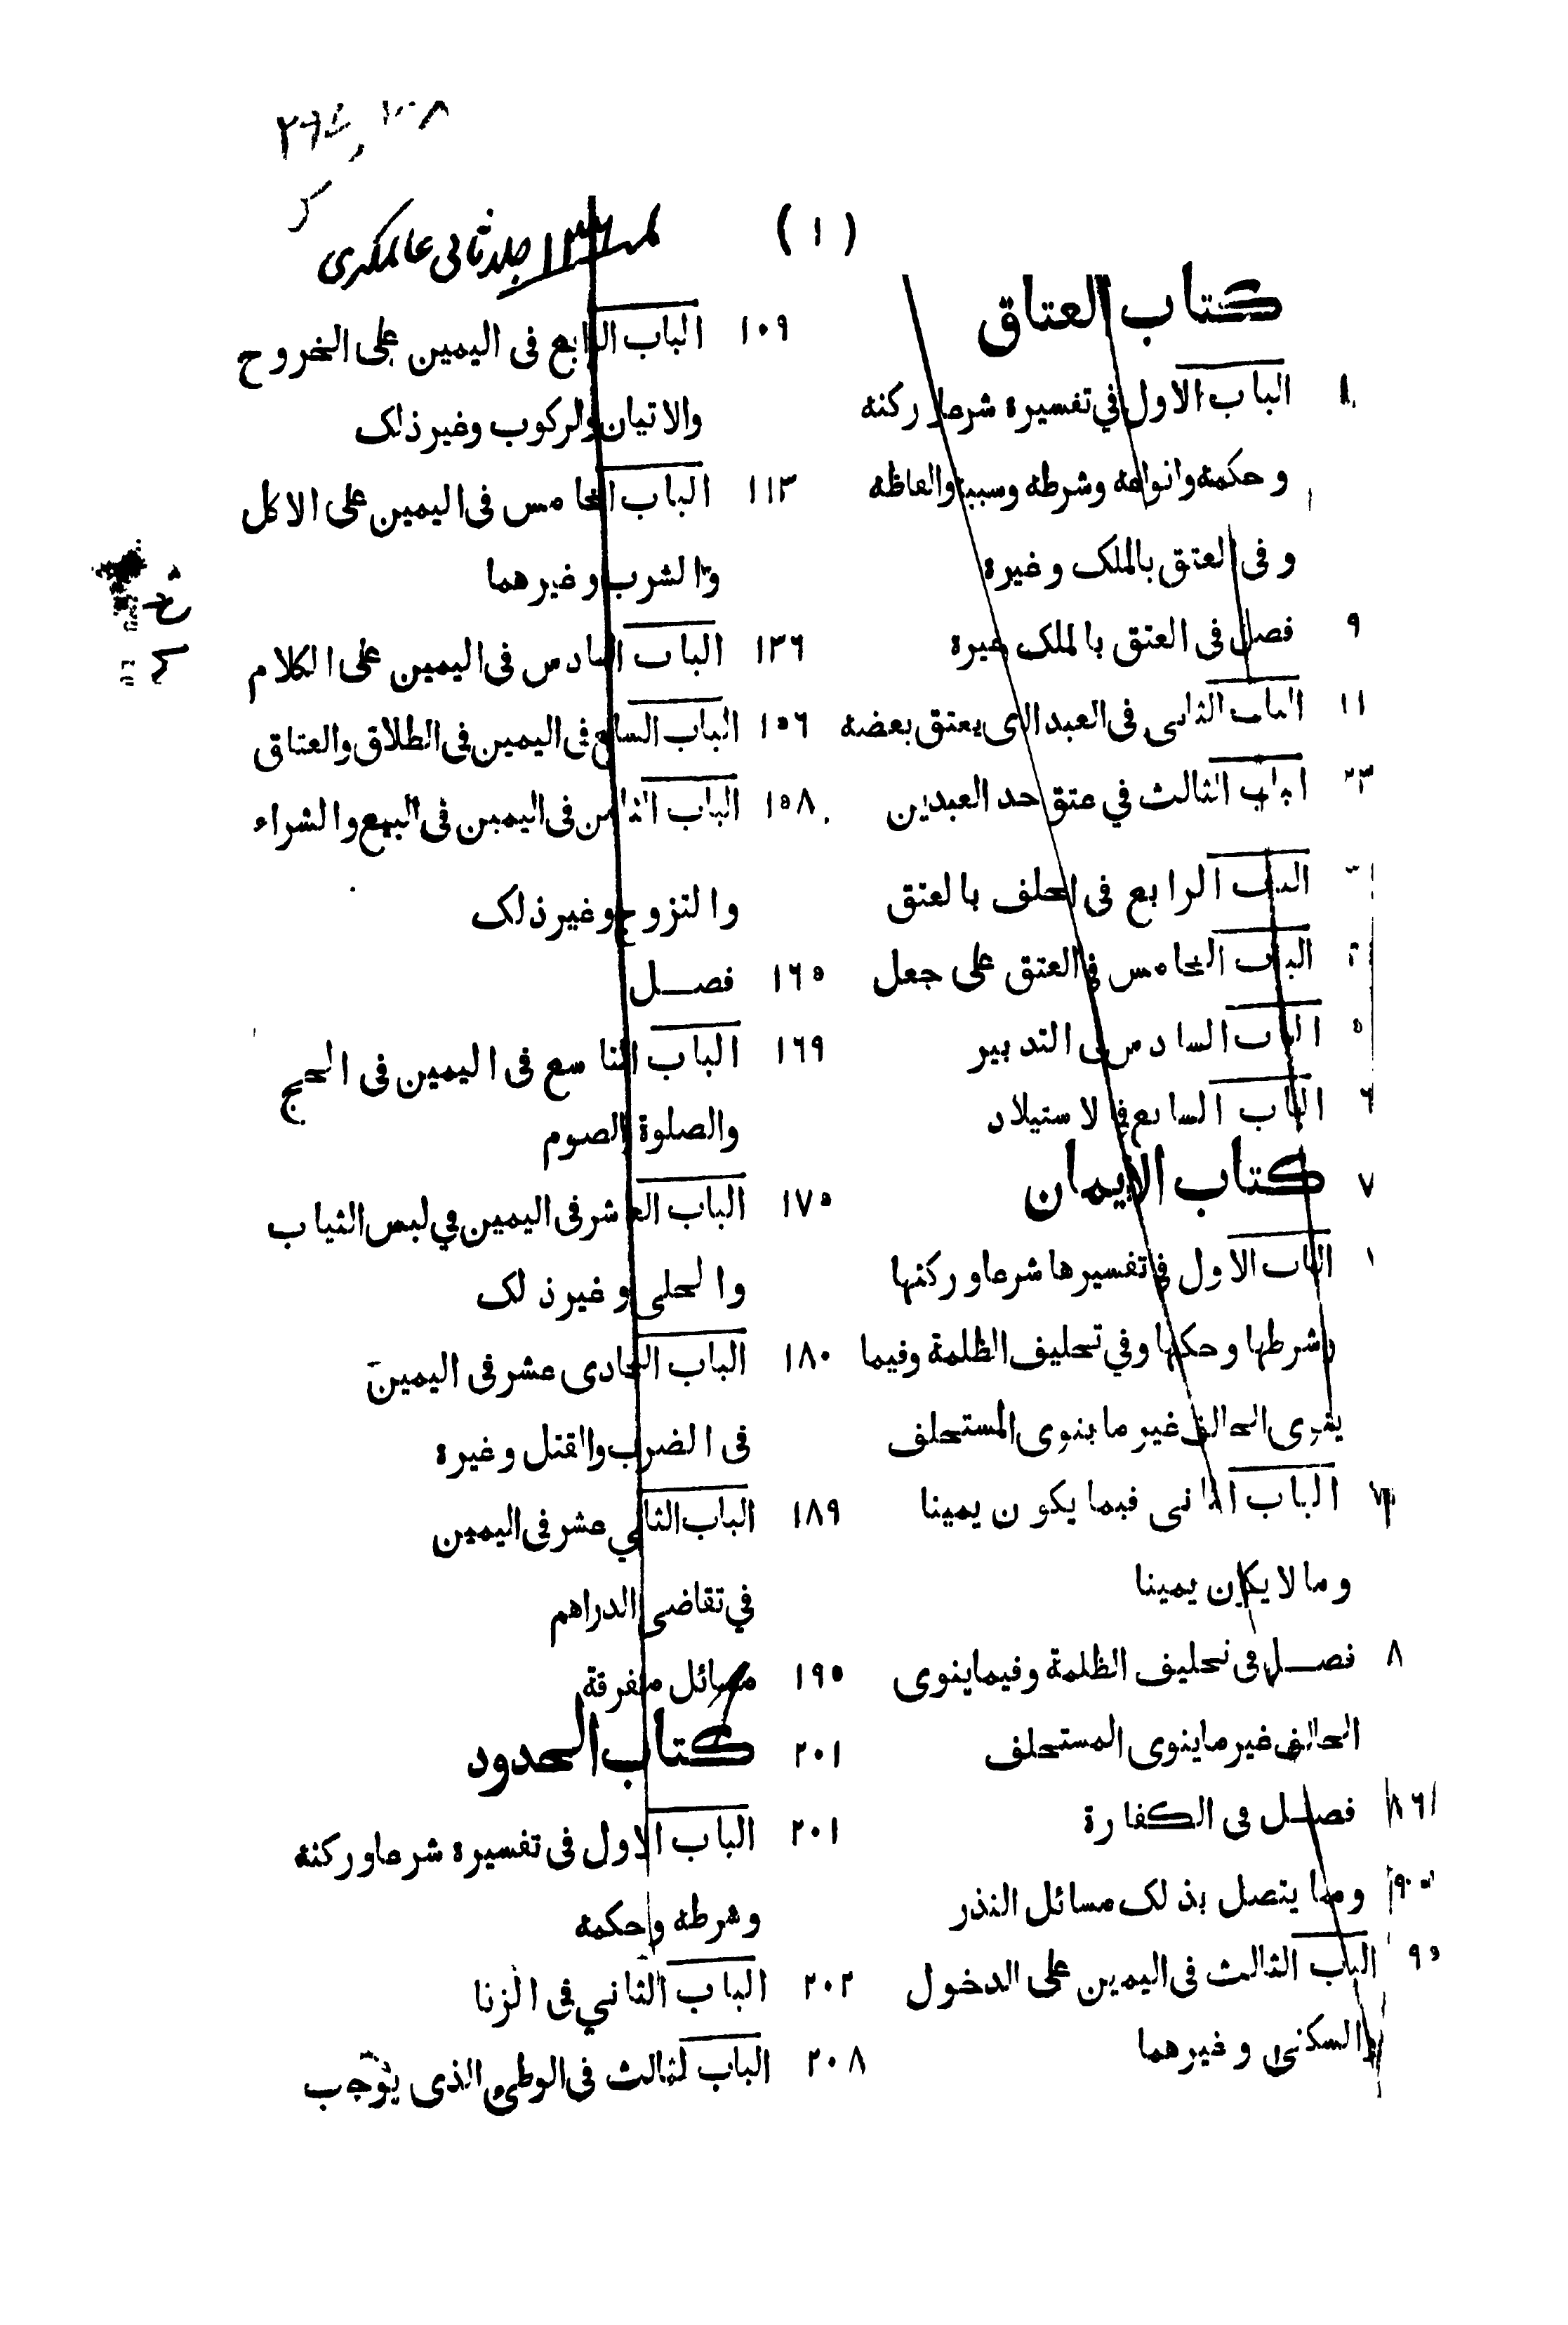 ( ١ )
جلد ثانى عالمكيرى
كتاب العتاق
الباب الاول في تفسيره شرعا ركنه
وحكمه وانواعه وشرطه وسببه والفاظه
وفى العتق بالملك وغيره
٩ فصل فى العتق بالملك غيره
١١ الباب الثانى فى العبد الذى يعتق بعضه
الباب الثالث في عتق احد العبدين
الباب الرابع فى الحلف بالعتق
الباب الخامس فى العتق على جعل
الباب السادس فى التدبير
الباب السابع فى الاستيلاد
كتاب الايمان
الباب الاول فى تفسيرها شرعا وركنها
وشرطها وحكمها وفي تحليف الظلمة وفيما
ينوى الحالف غير ما ينوى المستحلف
الباب الثانى فيما يكون يمينا
وما لا يكون يمينا
فصل فى تحليف الظلمة وفيما ينوى
الحالف غير ما ينوى المستحلف
فصل فى الكفارة
وما يتصل بذلك مسائل النذر
٩٥ الباب الثالث فى اليمين على الدخول
والسكنى وغيرهما
١٠٩ الباب الرابع فى اليمين على الخروج
والاتيان والركوب وغير ذلك
١١٣ الباب الخامس فى اليمين على الاكل
والشرب وغيرهما
١٣٦ الباب السادس فى اليمين على الكلام
١٥٦ الباب السابع فى اليمين فى الطلاق والعتاق
١٥٨ الباب الثامن فى اليمين فى البيع والشراء
والتزوج وغير ذلك
١٦٥ فصل
١٦٩ الباب التاسع فى اليمين فى الحج
والصلوة والصوم
١٧٥ الباب العاشر فى اليمين في لبس الثياب
والحلى وغير ذلك
١٨٠ الباب الحادى عشر فى اليمين
فى الضرب والقتل وغيره
١٨٩ الباب الثاني عشر فى اليمين
في تقاضى الدراهم
١٩٥ مسائل متفرقة
٢٠١ كتاب الحدود
٢٠١ الباب الاول فى تفسيره شرعا وركنه
وشرطه وحكمه
٢٠٢ الباب الثاني فى الزنا
٢٠٨ الباب الثالث فى الوطئ الذى يوجب